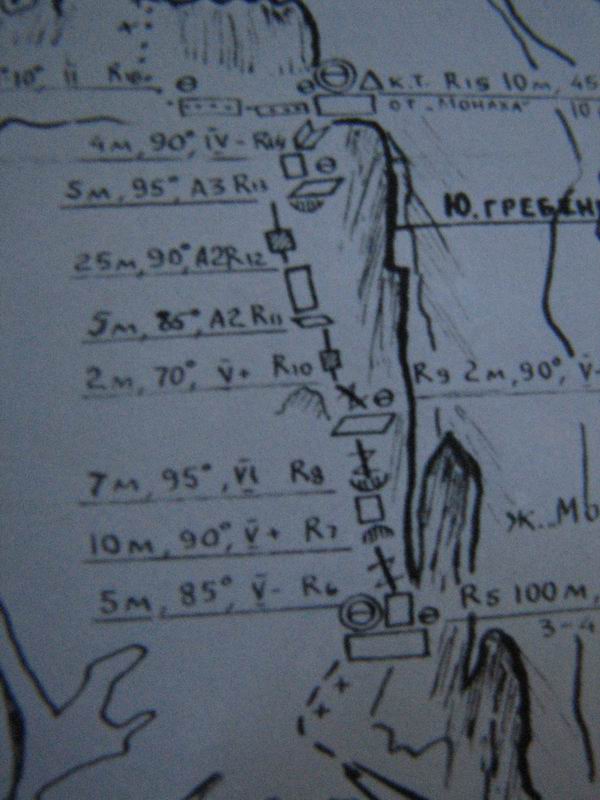 10°, II R16
Δ К.Т. R15 10м, 45
ОТ „МОНАХА" 10
4м, 90°, IV- R14
5м, 95°, А3 R13
Ю. ГРЕБЕН
25м, 90°, А2 R12
5м, 85°, А2 R11
2м, 70°, V+ R10
R9 2м, 90°, V-
7м, 95°, VI R8
Ж. Мо
10м, 90°, V+ R7
5м, 85°, V- R6
R5 100м,
3-4